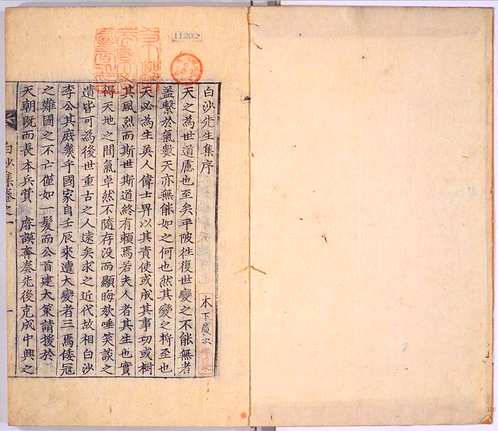 白沙先生集序
天之為世道慮也至矣平陂徃復世變之不能無者
盖繫於氣數天亦無能如之何也然其變之將至也
天必為生英人偉士畀以其責使或成其事功或樹
其風烈而斯世斯道終有賴焉若夫人者其生也實
得天地之間氣卓然不隨存沒而顯晦欬唾笑談之
遺皆可為後世重古之人遠矣求之近代故相白沙
李公其庶幾乎國家自壬辰來遭大變者三焉倭寇
之難國之不亡僅如一髮而公首建大策請援於
天朝既而長本兵賛 廟謨奔奏先後克成中興之
白沙集卷之一
木下廣次